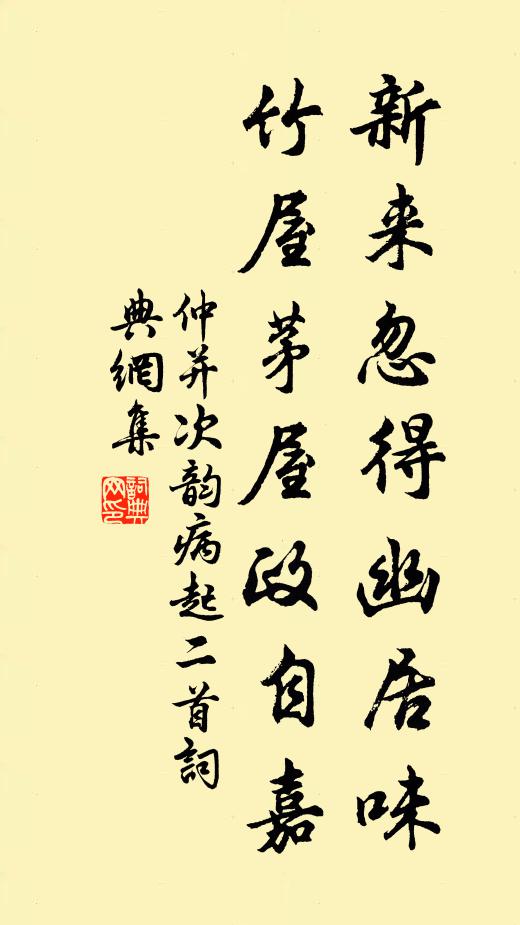 新来忽得幽居味
竹屋茅屋政自嘉
仲并次韵病起二首詞
典網集
詞典
网印